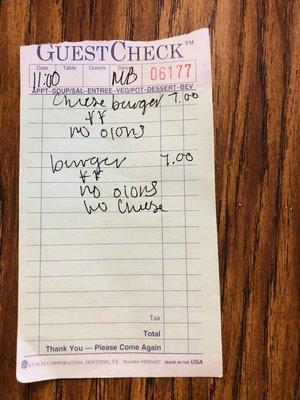 GUESTCHECK™
Date Table Guests Server
11:00 MB 06177
APPT-SOUP/SAL-ENTREE-VEG/POT-DESSERT-BEV
cheese burger 7.00
**
no oions
burger 7.00
**
no oions
no cheese
Tax
Total
Thank You — Please Come Again
SYSCO CORPORATION, HOUSTON, TX Reorder #4809487 MADE IN THE USA